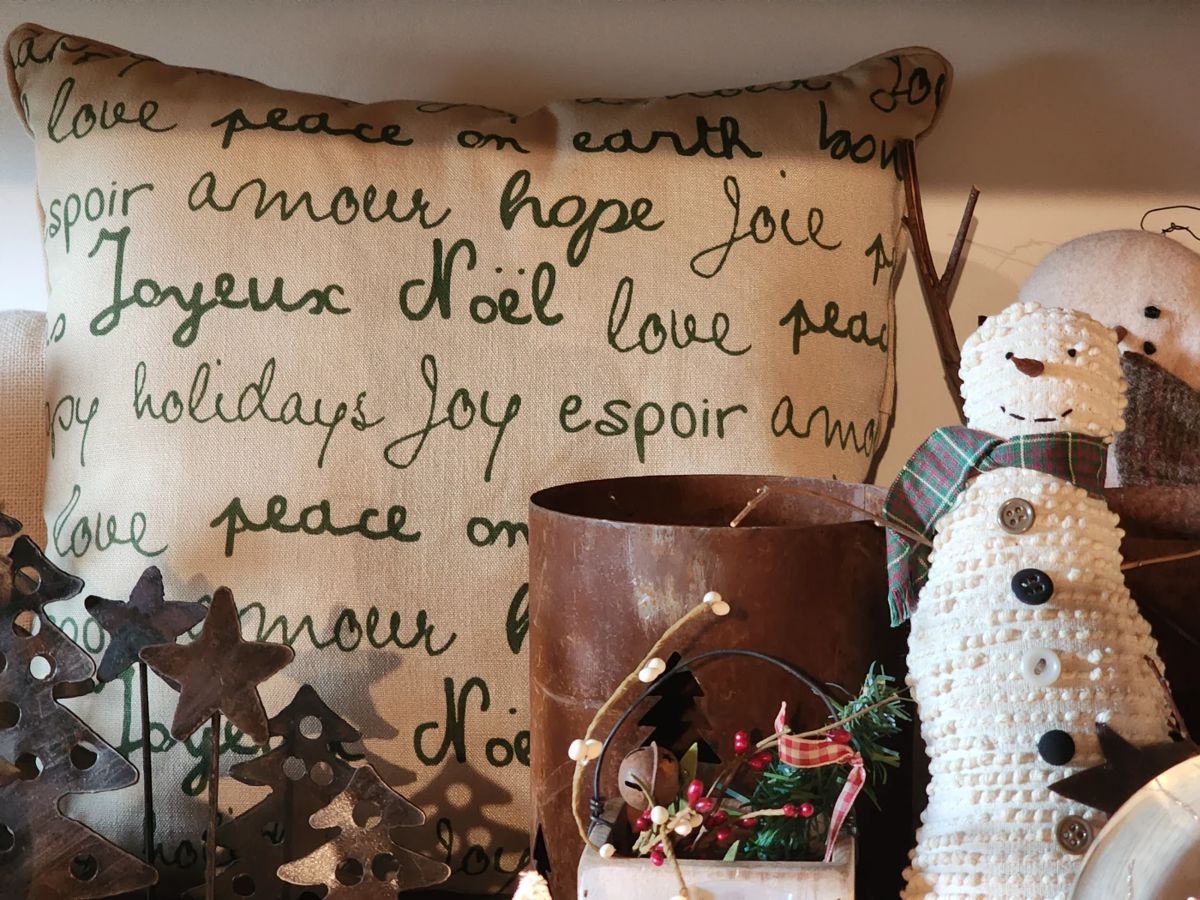 love peace on earth bon
spoir amour hope Joie p
s Joyeux Noël love peac
py holidays Joy espoir amo
love peace on
mour h
Joyeu Noë
Joy